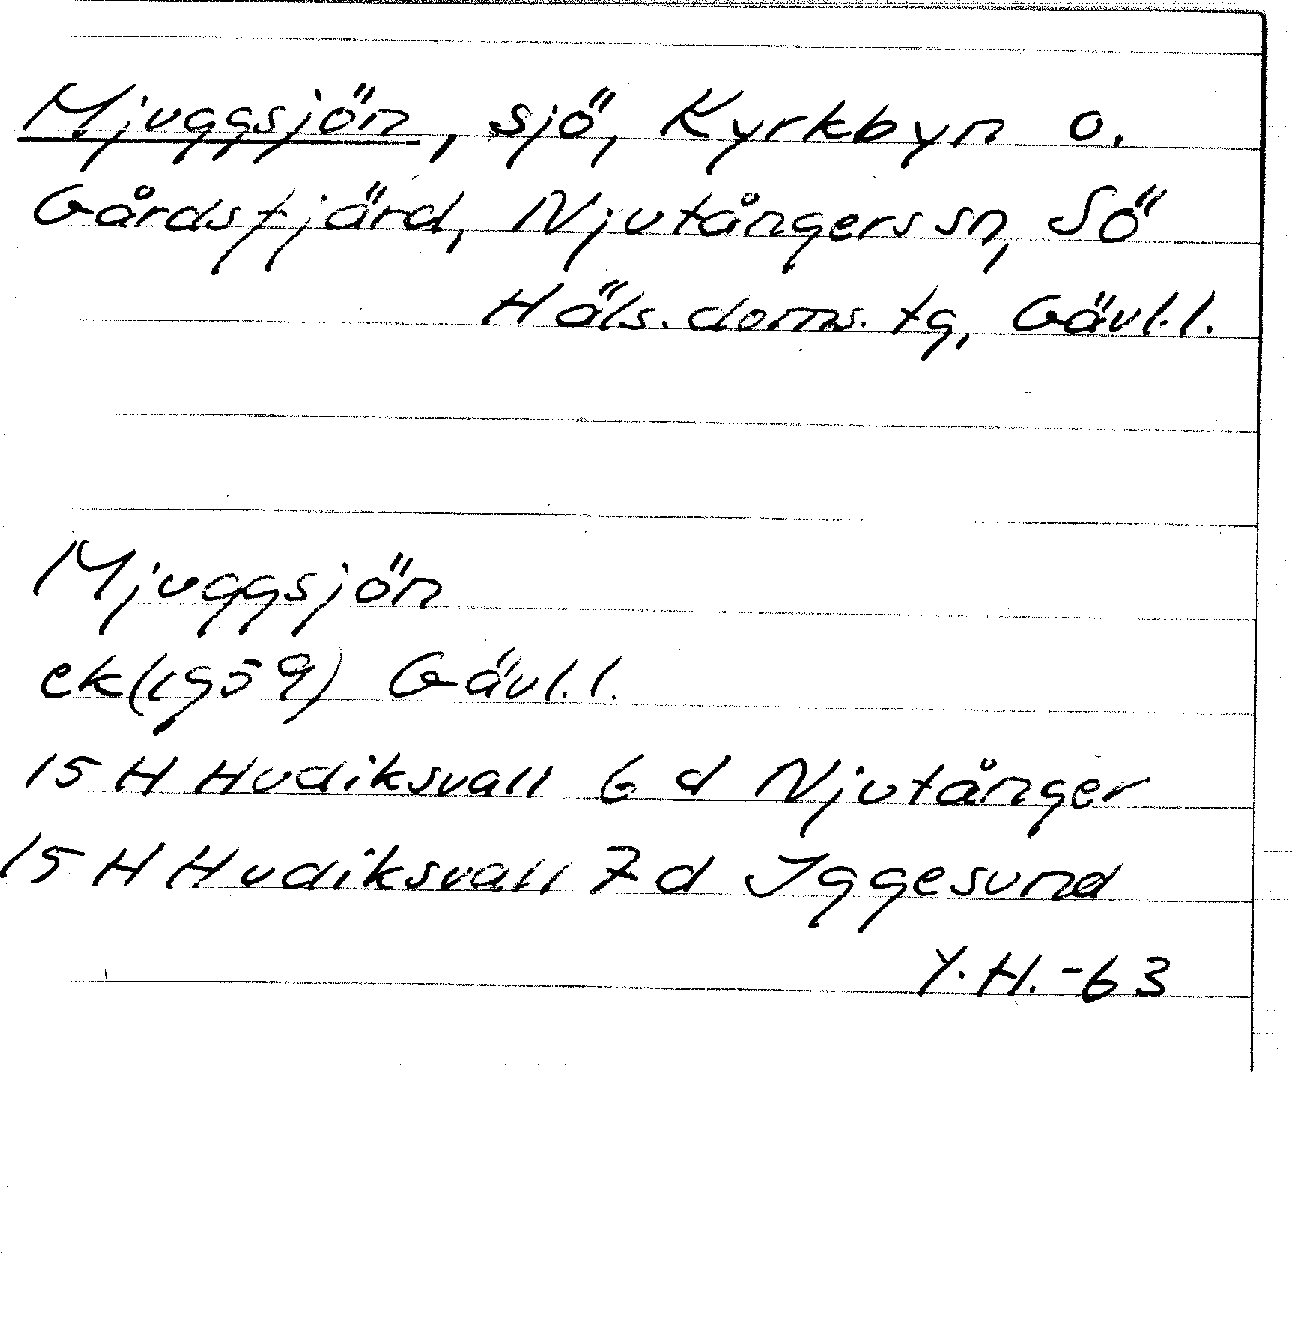 Mjuggsjön, sjö, Kyrkbyn o.
Gårdsfjärd, Njutångers sn, Sö
Häls. doms. tg, Gävl. l.
Mjuggsjön
ek(1959) Gävl. l.
15 H Hudiksvall 6 d Njutånger
15 H Hudiksvall 7 d Iggesund
Y. H. -63